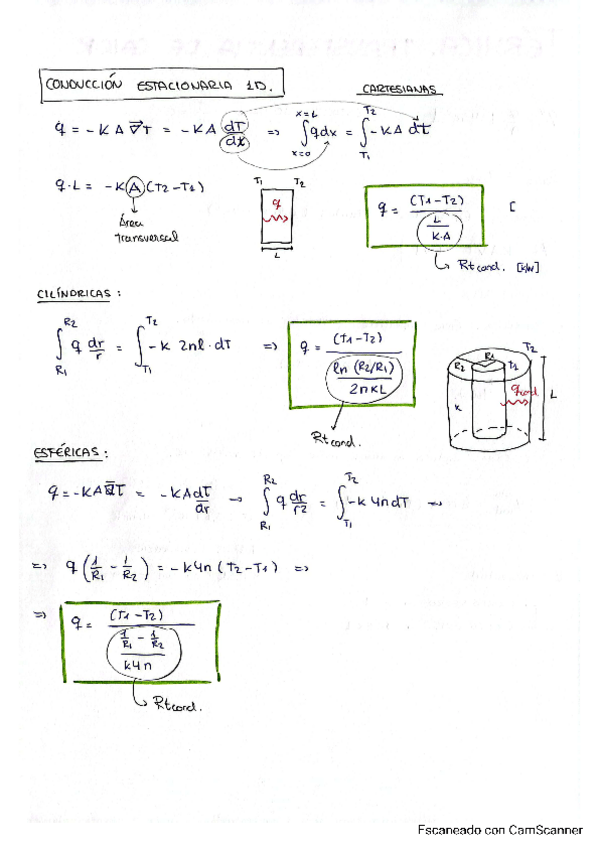 CONDUCCIÓN ESTACIONARIA 1D.
CARTESIANAS
q = -KA ∇T = -KA dT/dx => ∫ x=0 x=L q dx = ∫ T1 T2 -KA dt
q·L = -K A (T2-T1)
Área transversal
T1 T2
q
L
q = (T1-T2) / (L / K·A) [
Rt cond. [K/W]
CILÍNDRICAS:
∫ R1 R2 q dr/r = ∫ T1 T2 -K 2πl·dT => q = (T1-T2) / (ln (R2/R1) / 2πKL)
Rt cond.
R2 R1 T1 T2
K
q cond
L
ESFÉRICAS:
q = -KA∇T = -KA dT/dr → ∫ R1 R2 q dr/r2 = ∫ T1 T2 -K 4π dT
=> q (1/R1 - 1/R2) = -K4π (T2-T1) =>
=> q = (T1-T2) / ((1/R1 - 1/R2) / K4π)
Rt cond.
Escaneado con CamScanner